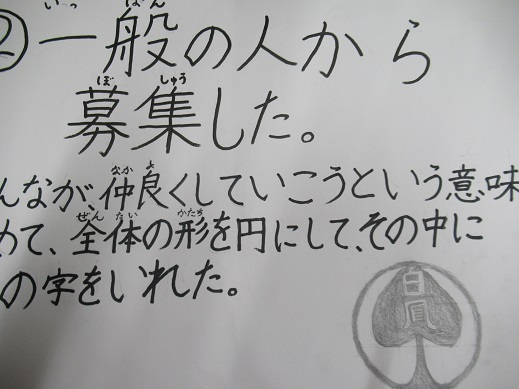 ②一般の人から
募集した。
んなが、仲良くしていこうという意味
めて、全体の形を円にして、その中に
の字をいれた。
白鳳